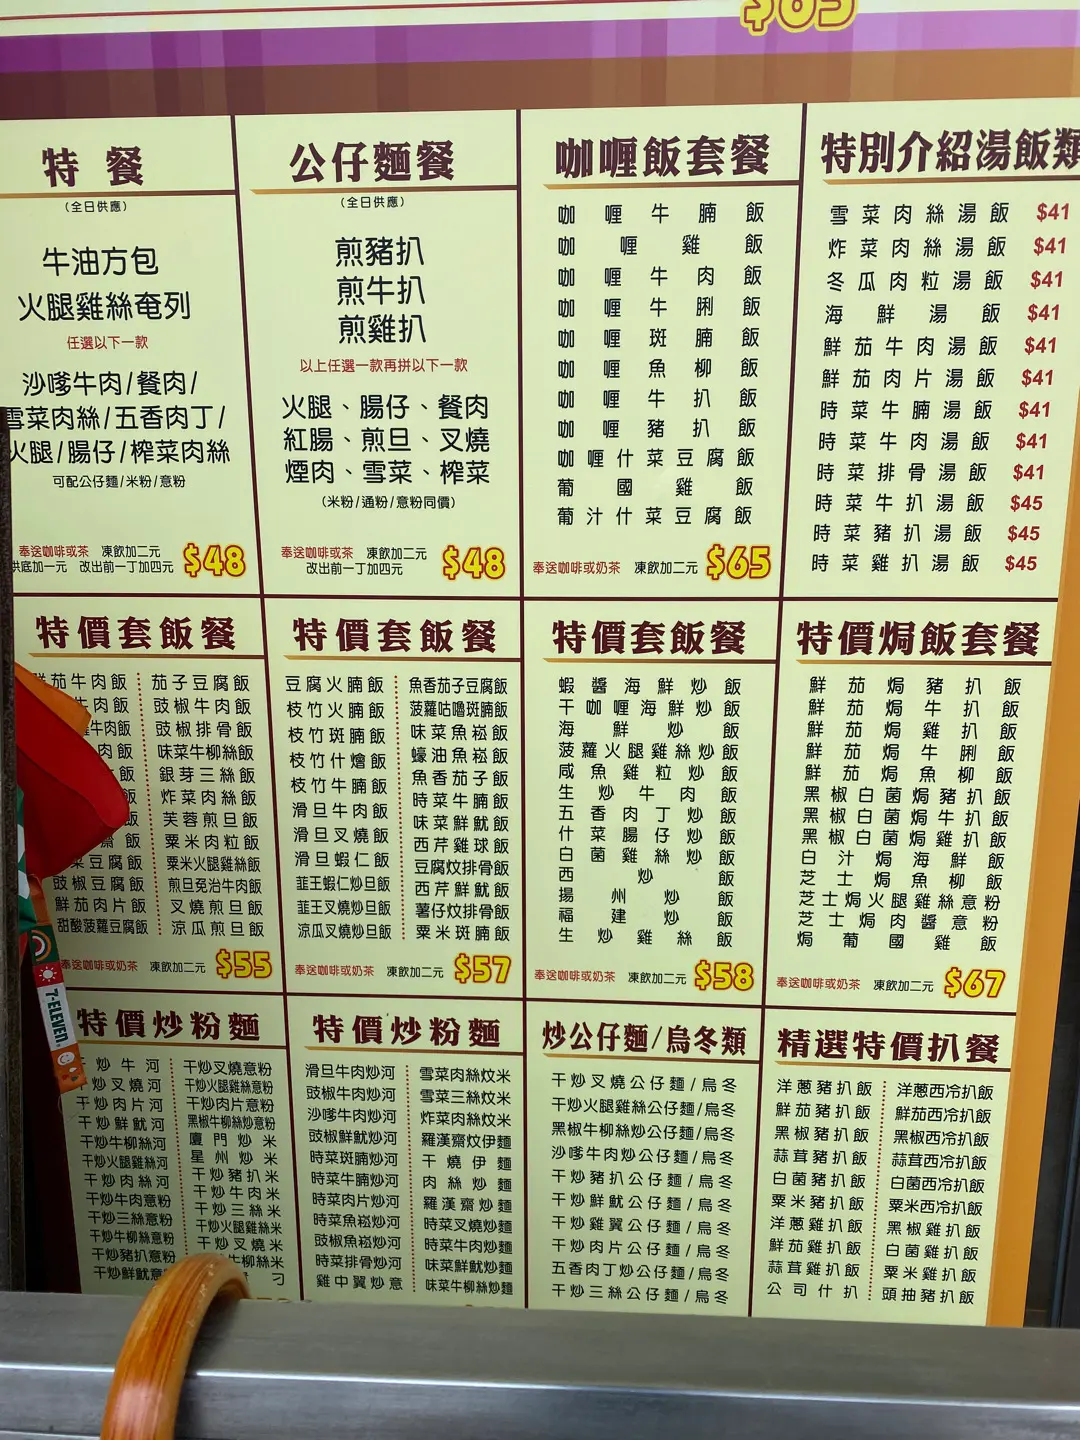 特餐
(全日供應)
牛油方包
火腿雞絲奄列
任選以下一款
沙嗲牛肉/餐肉/
雪菜肉絲/五香肉丁/
火腿/腸仔/榨菜肉絲
可配公仔麵/米粉/意粉
奉送咖啡或茶 凍飲加二元
烘底加一元 改出前一丁加四元
$48
公仔麵餐
(全日供應)
煎豬扒
煎牛扒
煎雞扒
以上任選一款再拼以下一款
火腿、腸仔、餐肉
紅腸、煎旦、叉燒
煙肉、雪菜、榨菜
(米粉/通粉/意粉同價)
奉送咖啡或茶 凍飲加二元
改出前一丁加四元
$48
咖喱飯套餐
咖喱牛腩飯
咖喱雞飯
咖喱牛肉飯
咖喱牛脷飯
咖喱斑腩飯
咖喱魚柳飯
咖喱牛扒飯
咖喱豬扒飯
咖喱什菜豆腐飯
葡國雞飯
葡汁什菜豆腐飯
奉送咖啡或奶茶 凍飲加二元 $65
特別介紹湯飯類
雪菜肉絲湯飯 $41
炸菜肉絲湯飯 $41
冬瓜肉粒湯飯 $41
海鮮湯飯 $41
鮮茄牛肉湯飯 $41
鮮茄肉片湯飯 $41
時菜牛腩湯飯 $41
時菜牛肉湯飯 $41
時菜排骨湯飯 $41
時菜牛扒湯飯 $45
時菜豬扒湯飯 $45
時菜雞扒湯飯 $45
特價套飯餐
鮮茄牛肉飯
牛肉飯
牛肉飯
肉飯
飯
飯
齋飯
菜豆腐飯
豉椒豆腐飯
鮮茄肉片飯
甜酸菠蘿豆腐飯
茄子豆腐飯
豉椒牛肉飯
豉椒排骨飯
味菜牛柳絲飯
銀芽三絲飯
炸菜肉絲飯
芙蓉煎旦飯
粟米肉粒飯
粟米火腿雞絲飯
煎旦免治牛肉飯
叉燒煎旦飯
涼瓜煎旦飯
奉送咖啡或奶茶 凍飲加二元 $55
特價套飯餐
豆腐火腩飯
枝竹火腩飯
枝竹斑腩飯
枝竹什燴飯
枝竹牛腩飯
滑旦牛肉飯
滑旦叉燒飯
滑旦蝦仁飯
韮王蝦仁炒旦飯
韮王叉燒炒旦飯
涼瓜叉燒炒旦飯
魚香茄子豆腐飯
菠蘿咕嚕斑腩飯
味菜魚崧飯
蠔油魚崧飯
魚香茄子飯
時菜牛腩飯
味菜鮮魷飯
西芹雞球飯
豆腐炆排骨飯
西芹鮮魷飯
薯仔炆排骨飯
粟米斑腩飯
奉送咖啡或奶茶 凍飲加二元 $57
特價套飯餐
蝦醬海鮮炒飯
干咖喱海鮮炒飯
海鮮炒飯
菠蘿火腿雞絲炒飯
咸魚雞粒炒飯
生炒牛肉飯
五香肉丁炒飯
什菜腸仔炒飯
白菌雞絲炒飯
西炒飯
揚州炒飯
福建炒飯
生炒雞絲飯
奉送咖啡或奶茶 凍飲加二元 $58
特價焗飯套餐
鮮茄焗豬扒飯
鮮茄焗牛扒飯
鮮茄焗雞扒飯
鮮茄焗牛脷飯
鮮茄焗魚柳飯
黑椒白菌焗豬扒飯
黑椒白菌焗牛扒飯
黑椒白菌焗雞扒飯
白汁焗海鮮飯
芝士焗魚柳飯
芝士焗火腿雞絲意粉
芝士焗肉醬意粉
焗葡國雞飯
奉送咖啡或奶茶 凍飲加二元 $67
特價炒粉麵
炒牛河
炒叉燒河
干炒肉片河
干炒鮮魷河
干炒牛柳絲河
干炒火腿雞絲河
干炒肉絲河
干炒牛肉意粉
干炒三絲意粉
干炒牛柳絲意粉
干炒豬扒意粉
干炒鮮魷意
干炒叉燒意粉
干炒火腿雞絲意粉
干炒肉片意粉
黑椒牛柳絲炒意粉
廈門炒米
星州炒米
干炒豬扒米
干炒牛肉米
干炒三絲米
干炒火腿雞絲米
干炒叉燒米
牛柳絲米
特價炒粉麵
滑旦牛肉炒河
豉椒牛肉炒河
沙嗲牛肉炒河
豉椒鮮魷炒河
時菜斑腩炒河
時菜牛腩炒河
時菜肉片炒河
時菜魚崧炒河
豉椒魚崧炒河
時菜排骨炒河
雞中翼炒意
雪菜肉絲炆米
雪菜三絲炆米
炸菜肉絲炆米
羅漢齋炆伊麵
干燒伊麵
肉絲炒麵
羅漢齋炒麵
時菜叉燒炒麵
時菜牛肉炒麵
味菜鮮魷炒麵
味菜牛柳絲炒麵
炒公仔麵/烏冬類
干炒叉燒公仔麵/烏冬
干炒火腿雞絲公仔麵/烏冬
黑椒牛柳絲炒公仔麵/烏冬
沙嗲牛肉炒公仔麵/烏冬
干炒豬扒公仔麵/烏冬
干炒鮮魷公仔麵/烏冬
干炒雞翼公仔麵/烏冬
干炒肉片公仔麵/烏冬
五香肉丁炒公仔麵/烏冬
干炒三絲公仔麵/烏冬
精選特價扒餐
洋蔥豬扒飯
鮮茄豬扒飯
黑椒豬扒飯
蒜茸豬扒飯
白菌豬扒飯
粟米豬扒飯
洋蔥雞扒飯
鮮茄雞扒飯
蒜茸雞扒飯
公司什扒
洋蔥西冷扒飯
鮮茄西冷扒飯
黑椒西冷扒飯
蒜茸西冷扒飯
白菌西冷扒飯
粟米西冷扒飯
黑椒雞扒飯
白菌雞扒飯
粟米雞扒飯
頭抽豬扒飯
7-ELEVEN